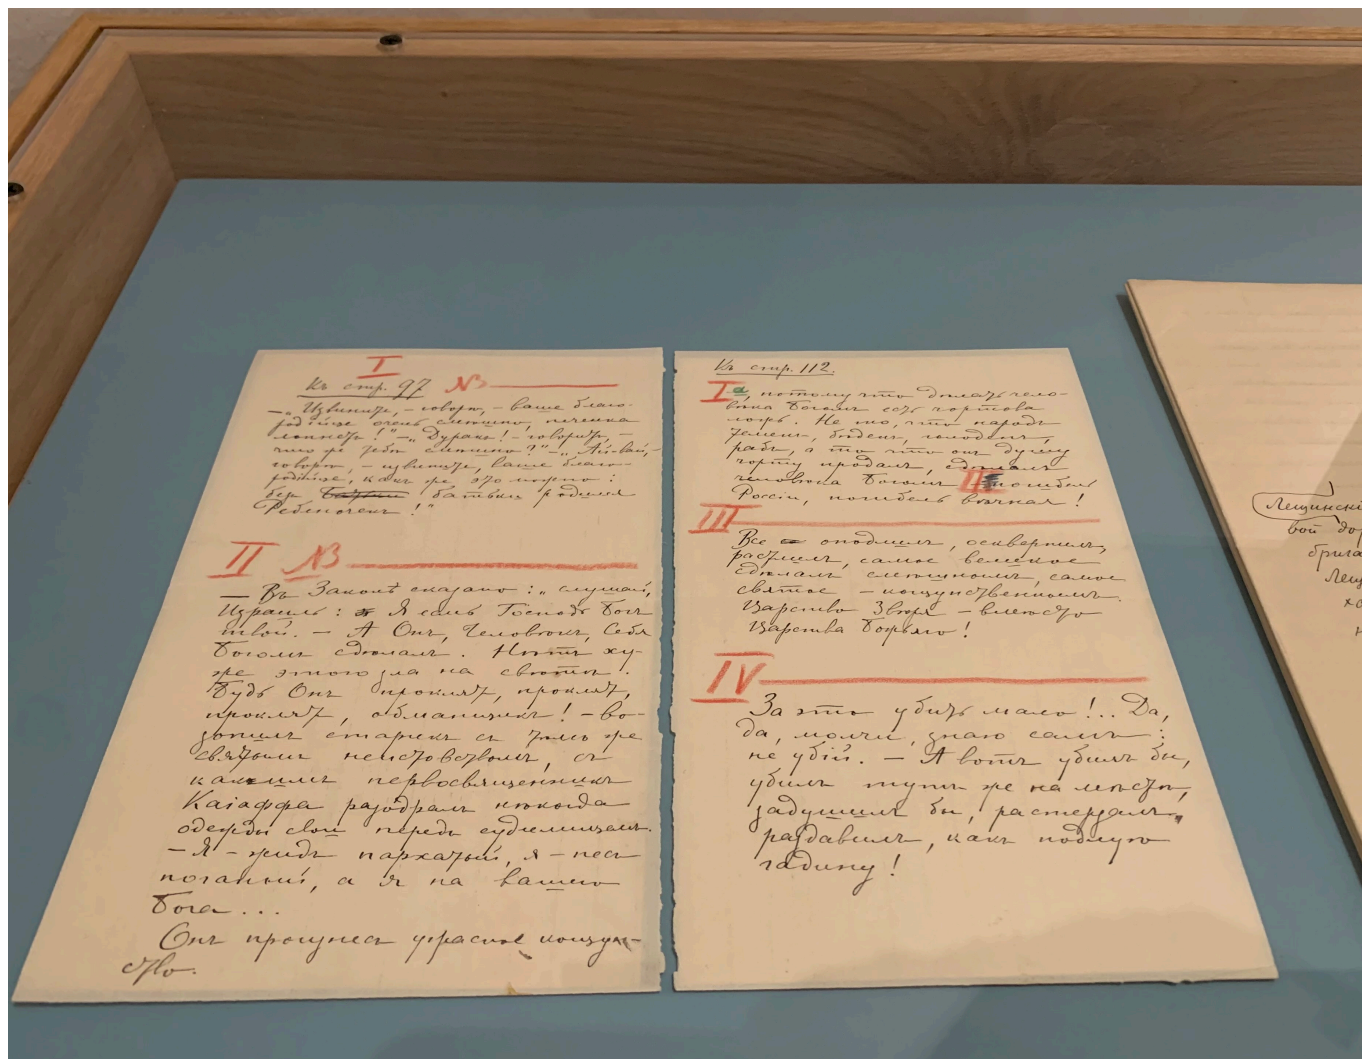 I
Къ стр. 97 №3
— „Извините, – говорю, – ваше благо-
родiе очень смешно, печенка
лопнетъ!" – „Дуракъ! – говоритъ, –
что же тебѣ смешно?" – „Ай-вай, –
говорю, – извините, ваше благо-
родiе, какъ же это можно:
безъ батьки родился
Ребеночекъ!"
II №3
— Въ Законѣ сказано: „слушай,
Израиль: Я есмь Господь Богъ
твой. – А Онъ, Человѣкъ, Себя
Богомъ сдѣлалъ. Нѣтъ ху-
же этого зла на свѣтѣ.
Будь Онъ проклятъ, проклятъ,
проклятъ, обманщикъ! – во-
зопилъ старикъ съ тѣмъ же
святымъ неистовствомъ, съ
какимъ первосвященникъ
Каiаффа разодралъ нѣкогда
одежды свои передъ судилищемъ.
– Я – жидъ пархатый, я – песъ
поганый, а я на вашего
Бога...
Онъ произнесъ ужасное кощун-
ство.
Къ стр. 112.
Iа, потому что дѣлать чело-
вѣка Богомъ есть чортова
ложь. Не то, что народъ
теменъ, бѣденъ, голоденъ,
рабъ, а то что онъ душу
чорту продалъ, сдѣлалъ
человѣка Богомъ II погибель
Россiи, погибель вѣчная!
III
Все оподлилъ, осквернилъ,
растлилъ, самое великое
сдѣлалъ смѣшнымъ, самое
святое – кощунственнымъ.
Царство Звѣря – вмѣсто
Царства Божьяго!
IV
За это убить мало!.. Да,
да, молчи, знаю самъ:
не убiй. – А вотъ убилъ бы,
убилъ тутъ же на мѣстѣ,
задушилъ бы, растерзалъ,
раздавилъ, какъ подлую
гадину!
Лещинскi
вой дор
брига
Лещ
хо
н